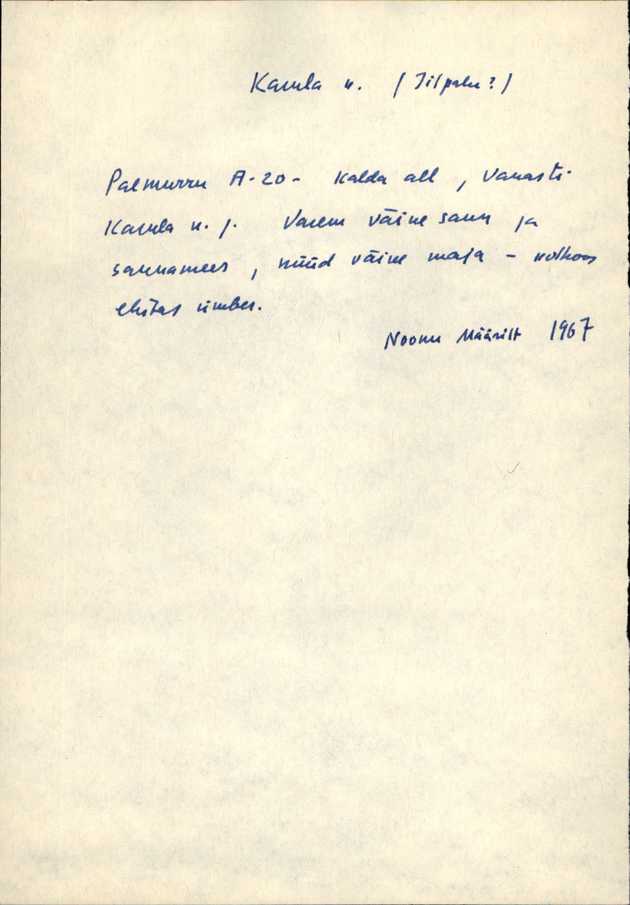 Karula n. (Iilpalu?)
Palmurru A-20- Kalda all, vanasti
Karula n. j. Varem väine saun ja
saunamees, nüüd väine maja - kolhoos
ehitas ümber.
Noonu Määrilt 1967